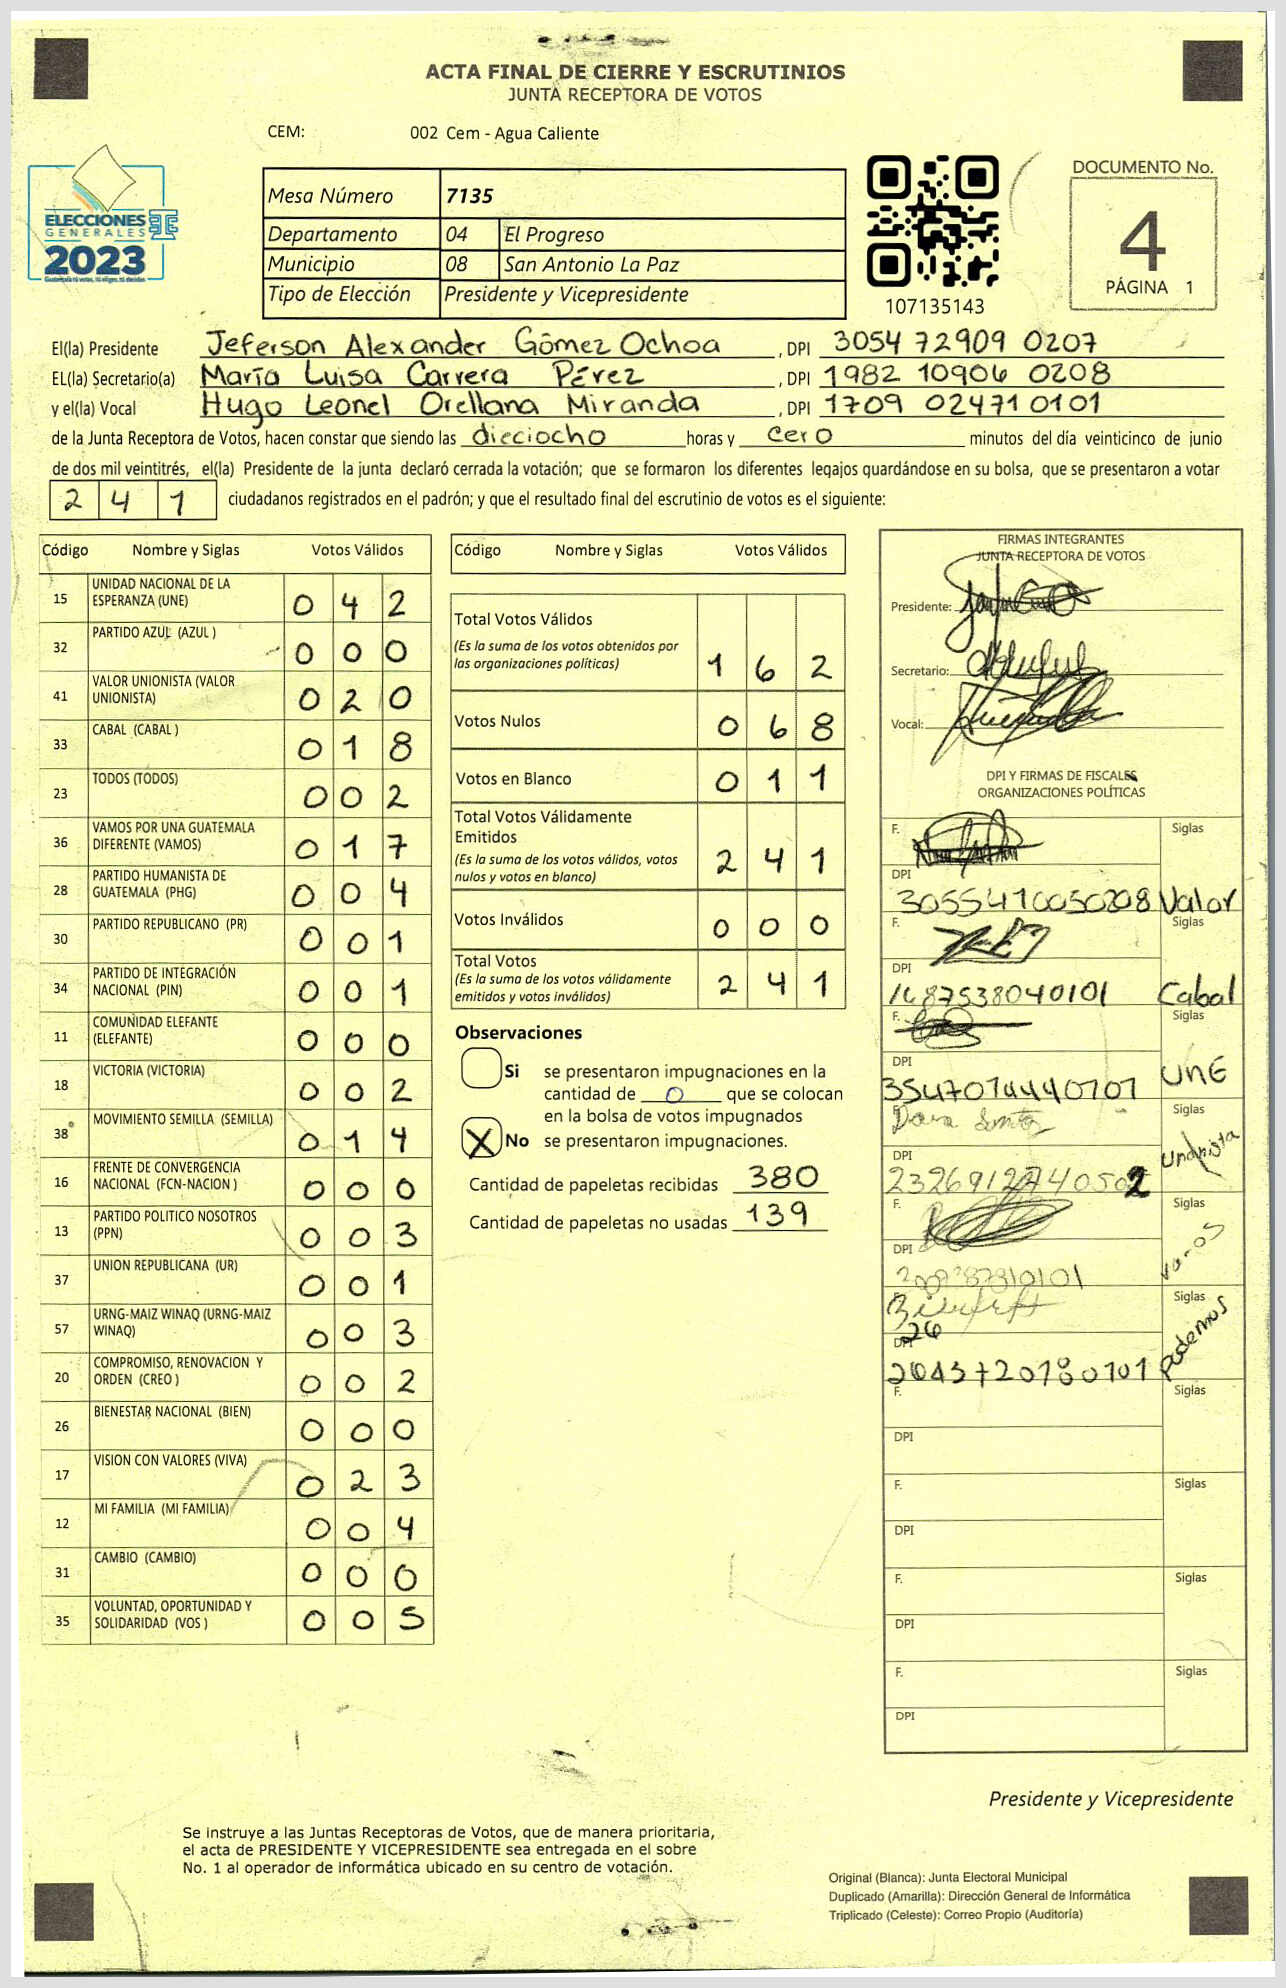 ACTA FINAL DE CIERRE Y ESCRUTINIOS
JUNTA RECEPTORA DE VOTOS
CEM: 002 Cem - Agua Caliente
ELECCIONES
GENERALES
2023
Mesa Número 7135
Departamento 04 El Progreso
Municipio 08 San Antonio La Paz
Tipo de Elección Presidente y Vicepresidente
107135143
DOCUMENTO No.
4
PÁGINA 1
El(la) Presidente Jeferson Alexander Gómez Ochoa , DPI 3054 72909 0207
EL(la) Secretario(a) María Luisa Carrera Pérez , DPI 1982 10906 0208
y el(la) Vocal Hugo Leonel Orellana Miranda , DPI 1709 02471 0101
de la Junta Receptora de Votos, hacen constar que siendo las dieciocho horas y cero minutos del día veinticinco de junio
de dos mil veintitrés, el(la) Presidente de la junta declaró cerrada la votación; que se formaron los diferentes legajos guardándose en su bolsa, que se presentaron a votar
241 ciudadanos registrados en el padrón; y que el resultado final del escrutinio de votos es el siguiente:
Código Nombre y Siglas Votos Válidos
15 UNIDAD NACIONAL DE LA ESPERANZA (UNE) 0 4 2
32 PARTIDO AZUL (AZUL ) 0 0 0
41 VALOR UNIONISTA (VALOR UNIONISTA) 0 2 0
33 CABAL (CABAL ) 0 1 8
23 TODOS (TODOS) 0 0 2
36 VAMOS POR UNA GUATEMALA DIFERENTE (VAMOS) 0 1 7
28 PARTIDO HUMANISTA DE GUATEMALA (PHG) 0 0 4
30 PARTIDO REPUBLICANO (PR) 0 0 1
34 PARTIDO DE INTEGRACIÓN NACIONAL (PIN) 0 0 1
11 COMUNIDAD ELEFANTE (ELEFANTE) 0 0 0
18 VICTORIA (VICTORIA) 0 0 2
38 MOVIMIENTO SEMILLA (SEMILLA) 0 1 4
16 FRENTE DE CONVERGENCIA NACIONAL (FCN-NACION ) 0 0 0
13 PARTIDO POLITICO NOSOTROS (PPN) 0 0 3
37 UNION REPUBLICANA (UR) 0 0 1
57 URNG-MAIZ WINAQ (URNG-MAIZ WINAQ) 0 0 3
20 COMPROMISO, RENOVACION Y ORDEN (CREO ) 0 0 2
26 BIENESTAR NACIONAL (BIEN) 0 0 0
17 VISION CON VALORES (VIVA) 0 2 3
12 MI FAMILIA (MI FAMILIA) 0 0 4
31 CAMBIO (CAMBIO) 0 0 0
35 VOLUNTAD, OPORTUNIDAD Y SOLIDARIDAD (VOS ) 0 0 5
Código Nombre y Siglas Votos Válidos
Total Votos Válidos
(Es la suma de los votos obtenidos por
las organizaciones políticas) 1 6 2
Votos Nulos 0 6 8
Votos en Blanco 0 1 1
Total Votos Válidamente
Emitidos
(Es la suma de los votos válidos, votos
nulos y votos en blanco) 2 4 1
Votos Inválidos 0 0 0
Total Votos
(Es la suma de los votos válidamente
emitidos y votos inválidos) 2 4 1
Observaciones
Si se presentaron impugnaciones en la
cantidad de 0 que se colocan
en la bolsa de votos impugnados
X No se presentaron impugnaciones.
Cantidad de papeletas recibidas 380
Cantidad de papeletas no usadas 139
FIRMAS INTEGRANTES
JUNTA RECEPTORA DE VOTOS
Presidente:
Secretario:
Vocal:
DPI Y FIRMAS DE FISCALES
ORGANIZACIONES POLÍTICAS
F. Siglas
DPI
Valor
F. Siglas
DPI
1687538040101 Cabal
F. Siglas
DPI
UNE
Siglas
DPI
F. Siglas
DPI
Siglas
Podemos
F. Siglas
DPI
F. Siglas
DPI
F. Siglas
DPI
F. Siglas
DPI
Presidente y Vicepresidente
Se instruye a las Juntas Receptoras de Votos, que de manera prioritaria,
el acta de PRESIDENTE Y VICEPRESIDENTE sea entregada en el sobre
No. 1 al operador de informática ubicado en su centro de votación.
Original (Blanca): Junta Electoral Municipal
Duplicado (Amarilla): Dirección General de Informática
Triplicado (Celeste): Correo Propio (Auditoría)